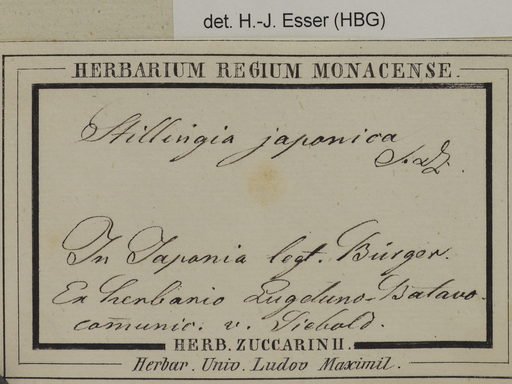 det. H.-J. Esser (HBG)
HERBARIUM REGIUM MONACENSE.
Stillingia japonica
S. & Z.
In Japonia legt. Bürger.
Ex herbario Lugduno-Batavo
com̄unic. v. Siebold.
HERB. ZUCCARINII.
Herbar. Univ. Ludov Maximil.